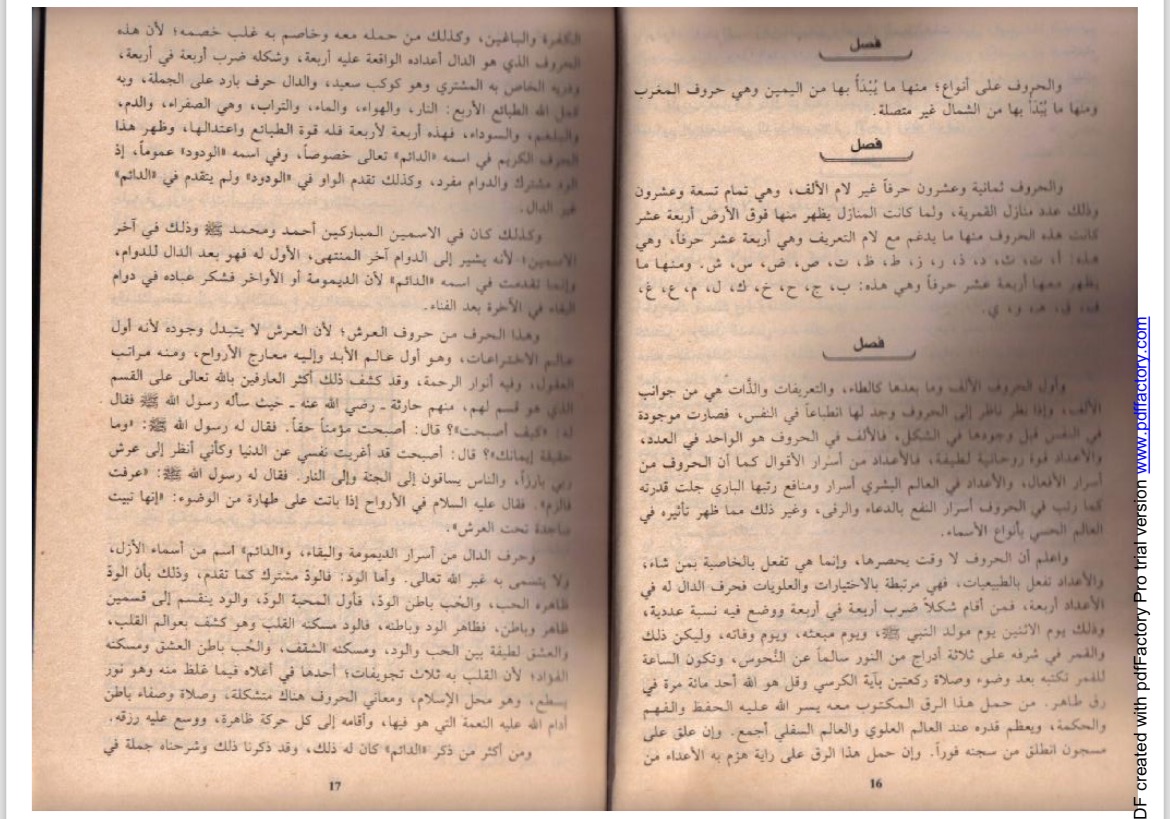 فصل
والحروف على أنواع؛ منها ما يُبْدَأُ بها من اليمين وهي حروف المغرب
ومنها ما يُبْدَأُ بها من الشمال غير متصلة.
فصل
والحروف ثمانية وعشرون حرفاً غير لام الألف، وهي تمام تسعة وعشرون
وذلك عدد منازل القمرية، ولما كانت المنازل يظهر منها فوق الأرض أربعة عشر
كانت هذه الحروف منها ما يدغم مع لام التعريف وهي أربعة عشر حرفاً، وهي
هذه: أ، ت، ث، د، ذ، ر، ز، ط، ظ، ت، ص، ض، س، ش. ومنها ما
يظهر معها أربعة عشر حرفاً وهي هذه: ب، ج، ح، خ، ك، ل، م، ع، غ،
ف، ق، هـ، و، ي.
فصل
وأول الحروف الألف وما بعدها كالطاء، والتعريفات والذَّات هي من جوانب
الألف، وإذا نظر ناظر إلى الحروف وجد لها انطباعاً في النفس، فصارت موجودة
في النفس قبل وجودها في الشكل، فالألف في الحروف هو الواحد في العدد،
والأعداد قوة روحانية لطيفة، فالأعداد من أسرار الأقوال كما أن الحروف من
أسرار الأفعال، والأعداد في العالم البشري أسرار ومنافع رتبها الباري جلت قدرته
كما رتب في الحروف أسرار النفع بالدعاء والرقى، وغير ذلك مما ظهر تأثيره في
العالم الحسي بأنواع الأسماء.
واعلم أن الحروف لا وقت يحصرها، وإنما هي تفعل بالخاصية بمن شاء،
والأعداد تفعل بالطبيعيات، فهي مرتبطة بالاختيارات والعلويات فحرف الدال له في
الأعداد أربعة، فمن أقام شكلاً ضرب أربعة في أربعة ووضع فيه نسبة عددية،
وذلك يوم الاثنين يوم مولد النبي ﷺ، ويوم مبعثه، ويوم وفاته، وليكن ذلك
والقمر في شرفه على ثلاثة أدراج من الثور سالماً عن النُّحوس، وتكون الساعة
للقمر تكتبه بعد وضوء وصلاة ركعتين بآية الكرسي وقل هو الله أحد مائة مرة في
رق طاهر. من حمل هذا الرق المكتوب معه يسر الله عليه الحفظ والفهم
والحكمة، ويعظم قدره عند العالم العلوي والعالم السفلي أجمع. وإن علق على
مسجون انطلق من سجنه فوراً. وإن حمل هذا الرق على راية هزم به الأعداء من
16
الكفرة والباغين، وكذلك من حمله معه وخاصم به غلب خصمه؛ لأن هذه
الحروف الذي هو الدال أعداده الواقعة عليه أربعة، وشكله ضرب أربعة في أربعة،
الخاص به المشتري وهو كوكب سعيد، والدال حرف بارد على الجملة، وبه
الله الطبائع الأربع: النار، والهواء، والماء، والتراب، وهي الصفراء، والدم،
والبلغم، والسوداء، فهذه أربعة لأربعة فله قوة الطبائع واعتدالها، وظهر هذا
الحرف الكريم في اسمه «الدائم» تعالى خصوصاً، وفي اسمه «الودود» عموماً، إذ
الود مشترك والدوام مفرد، وكذلك تقدم الواو في «الودود» ولم يتقدم في «الدائم»
غير الدال.
وكذلك كان في الاسمين المباركين أحمد ومحمد ﷺ وذلك في آخر
الاسمين؛ لأنه يشير إلى الدوام آخر المنتهى، الأول له فهو بعد الدال للدوام،
وإنما تقدمت في اسمه «الدائم» لأن الديمومة أو الأواخر فشكر عباده في دوام
البقاء في الآخرة بعد الفناء.
وهذا الحرف من حروف العرش؛ لأن العرش لا يتبدل وجوده لأنه أول
عالم الاختراعات، وهو أول عالم الأبد وإليه معارج الأرواح، ومنه مراتب
العقول، وفيه أنوار الرحمة، وقد كشف ذلك أكثر العارفين بالله تعالى على القسم
الذي هو قسم لهم، منهم حارثة ـ رضي الله عنه ـ حيث سأله رسول الله ﷺ فقال
له: «كيف أصبحت»؟ قال: أصبحت مؤمناً حقاً. فقال له رسول الله ﷺ: «وما
حقيقة إيمانك»؟ قال: أصبحت قد أغريت نفسي عن الدنيا وكأني أنظر إلى عرش
ربي بارزاً، والناس يساقون إلى الجنة وإلى النار. فقال له رسول الله ﷺ: «عرفت
فالزم». فقال عليه السلام في الأرواح إذا باتت على طهارة من الوضوء: «إنها تبيت
ساجدة تحت العرش».
وحرف الدال من أسرار الديمومة والبقاء، و«الدائم» اسم من أسماء الأزل،
ولا يتسمى به غير الله تعالى. وأما الود: فالودّ مشترك كما تقدم، وذلك بأن الودّ
ظاهره الحب، والحُب باطن الودّ، فأول المحبة الودّ، والود ينقسم إلى قسمين
ظاهر وباطن، فظاهر الود وباطنه، فالود مسكنه القلب وهو كشف بعوالم القلب،
والعشق لطيفة بين الحب والود، ومسكنه الشغف، والحُب باطن العشق ومسكنه
الفؤاد؛ لأن القلب به ثلاث تجويفات؛ أحدها في أعلاه فيما غلظ منه وهو نور
يسطع، وهو محل الإسلام، ومعاني الحروف هناك متشكلة، وصلاة وصفاء باطن
أدام الله عليه النعمة التي هو فيها، وأقامه إلى كل حركة ظاهرة، ووسع عليه رزقه.
ومن أكثر من ذكر «الدائم» كان له ذلك، وقد ذكرنا ذلك وشرحناه جملة في
17
DF created with pdfFactory Pro trial version www.pdffactory.com